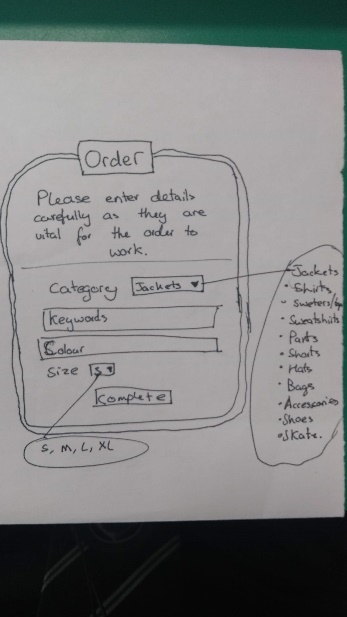 Order
Please enter details
carefully as they are
vital for the order to
work.
Category Jackets
Keywords
Colour
Size S
Complete
S, M, L, XL
Jackets
• Shirts
• Sweters/
• Sweatshirts
• Pants
• Shorts
• Hats
• Bags
• Accessories
• Shoes
• Skate.